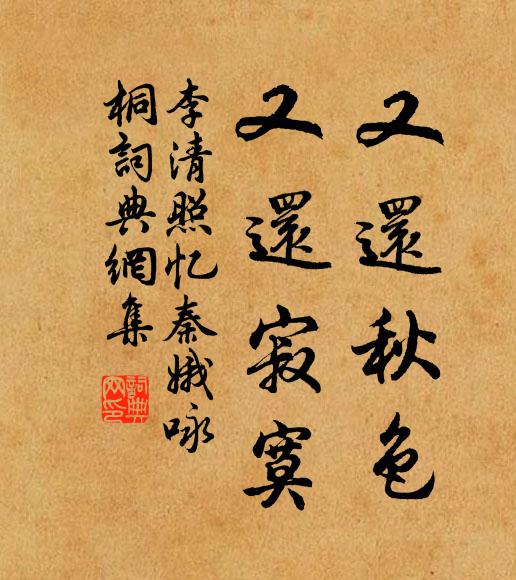 又還秋色
又還寂寞
李清照忆秦娥咏
桐詞典網集
詞典網印